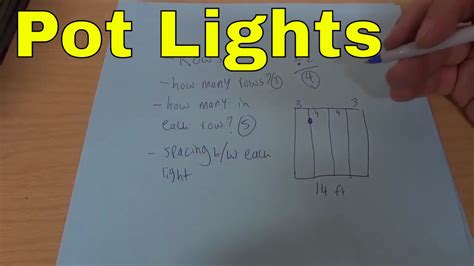 Pot Lights
4
- how many rows? 3
- how many in
each row? 5
- spacing b/w each
light
3 4 4 3
14 ft